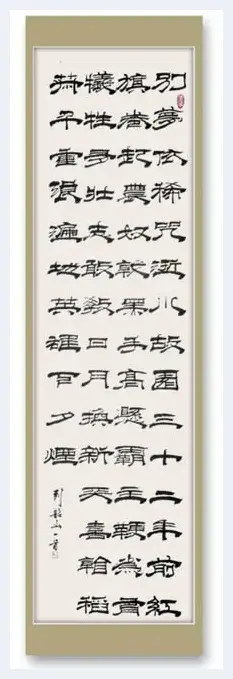 别夢依稀咒逝川故園三十二年前紅
旗卷起農奴戟黑手高懸霸主鞭為有
犧牲多壯志敢教日月換新天喜看稻
菽千重浪遍地英雄下夕煙
到韶山一首